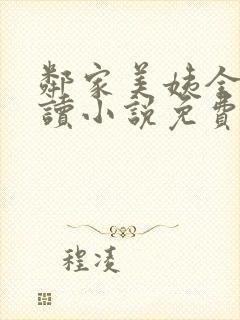 鄰家美姨全
讀小說免費
程凌